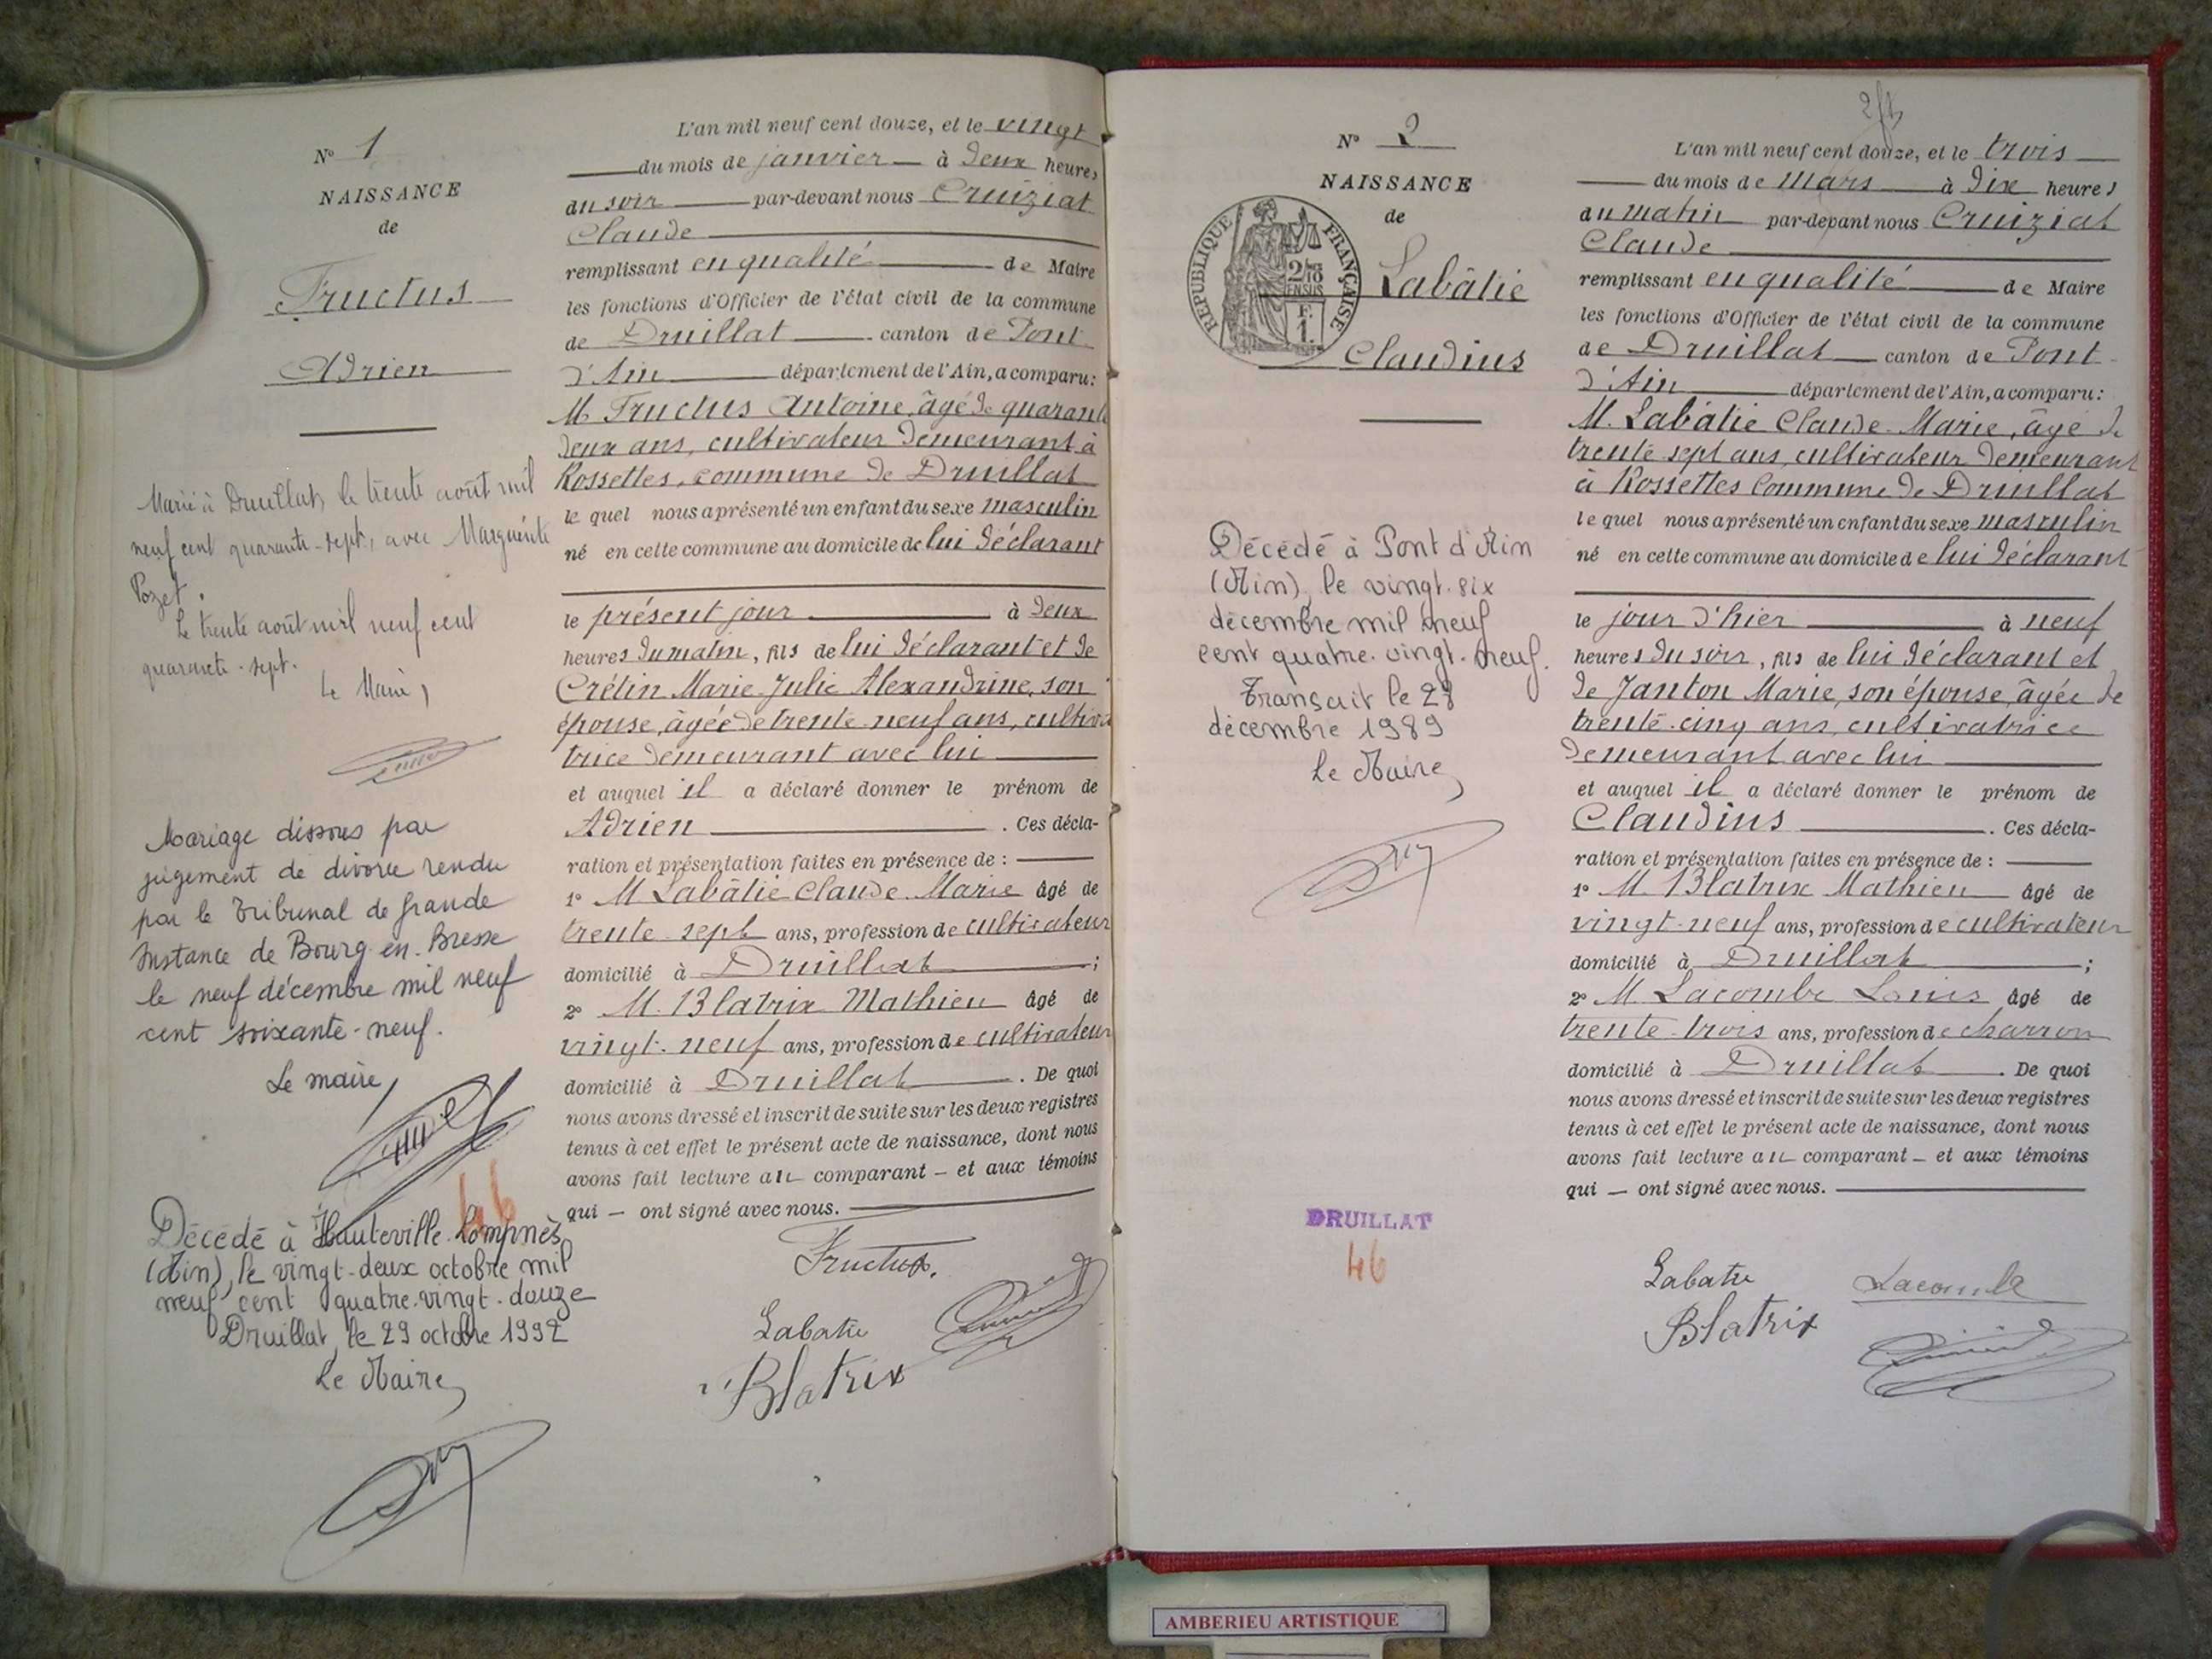 N° 1
NAISSANCE
de
Fructus
Adrien
Marié à Druillat, le trente août mil
neuf cent quarante-sept, avec Marguerite
Pozet.
Le trente août mil neuf cent
quarante-sept.
Le Maire,
Mariage dissous par
jugement de divorce rendu
par le Tribunal de Grande
Instance de Bourg-en-Bresse
le neuf décembre mil neuf
cent soixante-neuf.
Le maire,
46
Décédé à Hauteville-Lompnès
(Ain), le vingt-deux octobre mil
neuf cent quatre-vingt-douze
Druillat, le 29 octobre 1992
Le Maire,
L'an mil neuf cent douze, et le vingt
du mois de janvier à deux heures
du soir par-devant nous Cruiziat
Claude
remplissant en qualité de Maire
les fonctions d'Officier de l'état civil de la commune
de Druillat canton de Pont
d'Ain département de l'Ain, a comparu:
M. Fructus Antoine, âgé de quarante
deux ans, cultivateur demeurant à
Rossettes, commune de Druillat
le quel nous a présenté un enfant du sexe masculin
né en cette commune au domicile de lui déclarant
le présent jour à deux
heures du matin, fils de lui déclarant et de
Crétin Marie Julie Alexandrine, son
épouse, âgée de trente-neuf ans, cultiva
trice demeurant avec lui
et auquel il a déclaré donner le prénom de
Adrien . Ces décla-
ration et présentation faites en présence de :
1° M Labâtie Claude Marie âgé de
trente-sept ans, profession de cultivateur
domicilié à Druillat ;
2° M. Blatrix Mathieu âgé de
vingt-neuf ans, profession de cultivateur
domicilié à Druillat . De quoi
nous avons dressé et inscrit de suite sur les deux registres
tenus à cet effet le présent acte de naissance, dont nous
avons fait lecture au comparant – et aux témoins
qui — ont signé avec nous.
Fructus.
Labatie
Blatrix
N° 2
NAISSANCE
de
RÉPUBLIQUE FRANÇAISE
2/10
EN SUS
F.
1.
Labâtie
Claudius
Décédé à Pont d'Ain
(Ain), le vingt-six
décembre mil neuf
cent quatre-vingt-neuf.
Transcrit le 28
décembre 1989
Le Maire,
DRUILLAT
46
L'an mil neuf cent douze, et le trois
du mois de mars à dix heures
du matin par-devant nous Cruiziat
Claude
remplissant en qualité de Maire
les fonctions d'Officier de l'état civil de la commune
de Druillat canton de Pont-
d'Ain département de l'Ain, a comparu:
M. Labâtie Claude-Marie, âgé de
trente-sept ans, cultivateur demeurant
à Rossettes Commune de Druillat
le quel nous a présenté un enfant du sexe masculin
né en cette commune au domicile de lui déclarant
le jour d'hier à neuf
heures du soir, fils de lui déclarant et
de Janton Marie, son épouse, âgée de
trente-cinq ans, cultivatrice
demeurant avec lui
et auquel il a déclaré donner le prénom de
Claudius . Ces décla-
ration et présentation faites en présence de :
1° M. Blatrix Mathieu âgé de
vingt-neuf ans, profession de cultivateur
domicilié à Druillat ;
2° M Lacombe Louis âgé de
trente-trois ans, profession de charron
domicilié à Druillat . De quoi
nous avons dressé et inscrit de suite sur les deux registres
tenus à cet effet le présent acte de naissance, dont nous
avons fait lecture au comparant – et aux témoins
qui — ont signé avec nous.
Labatie Lacombe
Blatrix
AMBERIEU ARTISTIQUE